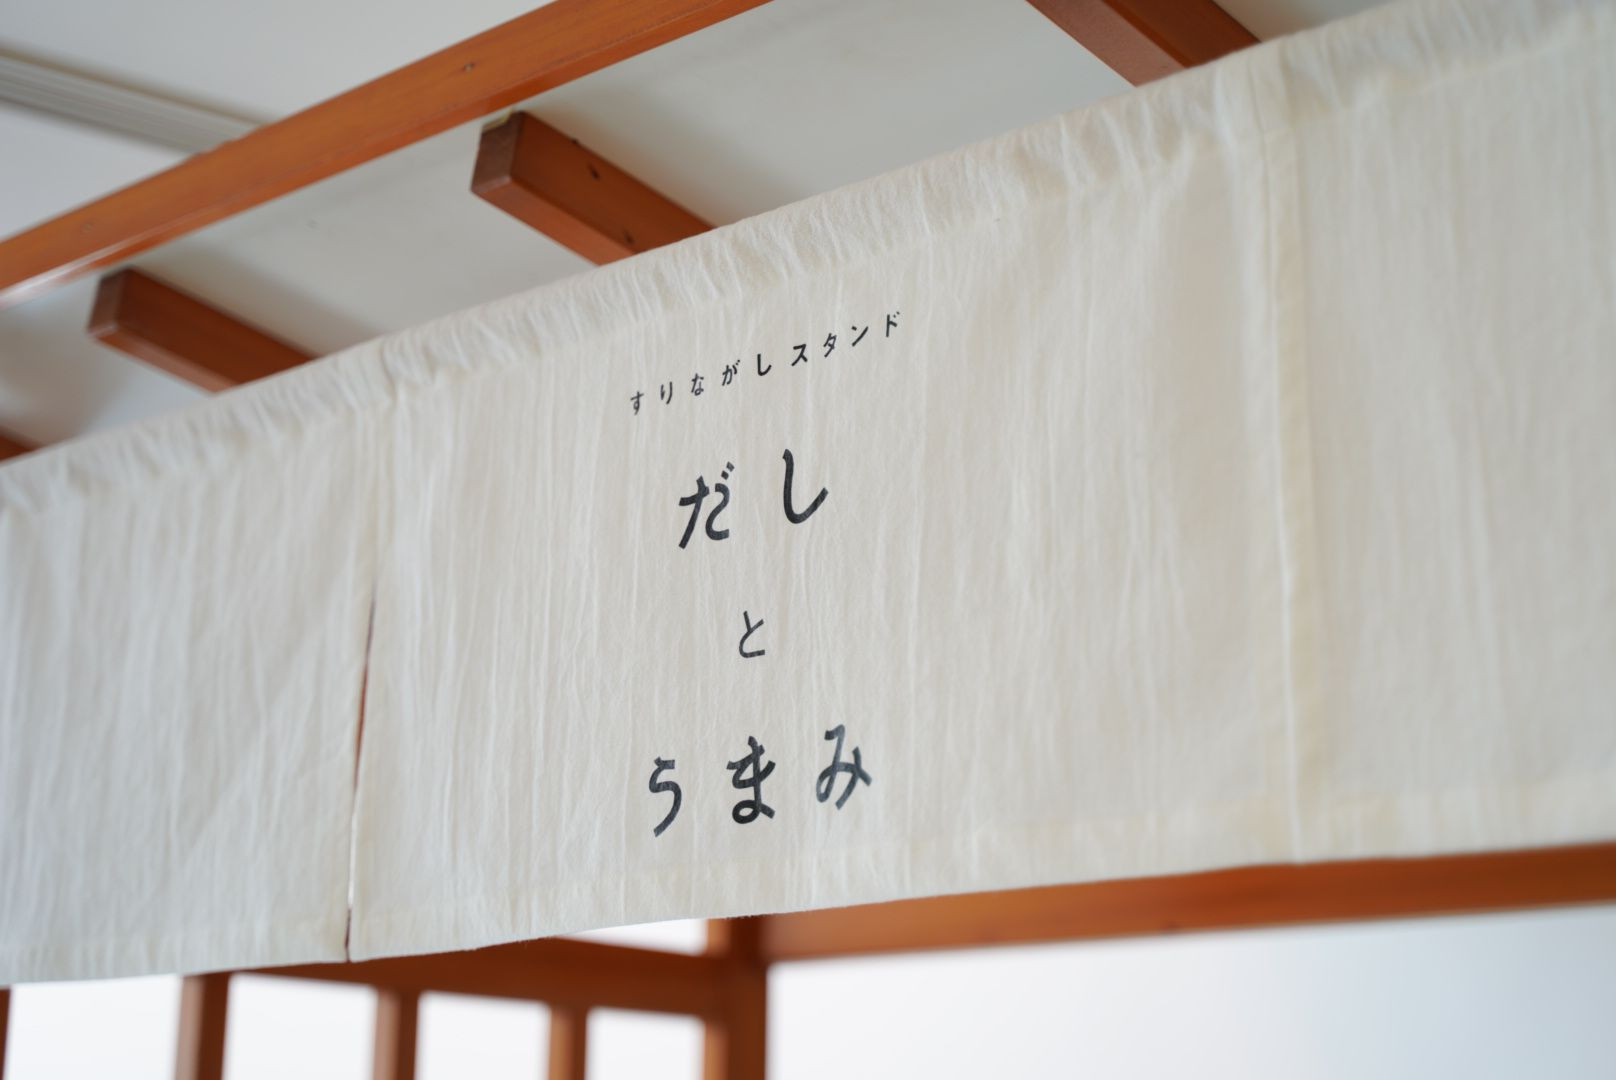 すりながしスタンド
だし
と
うまみ